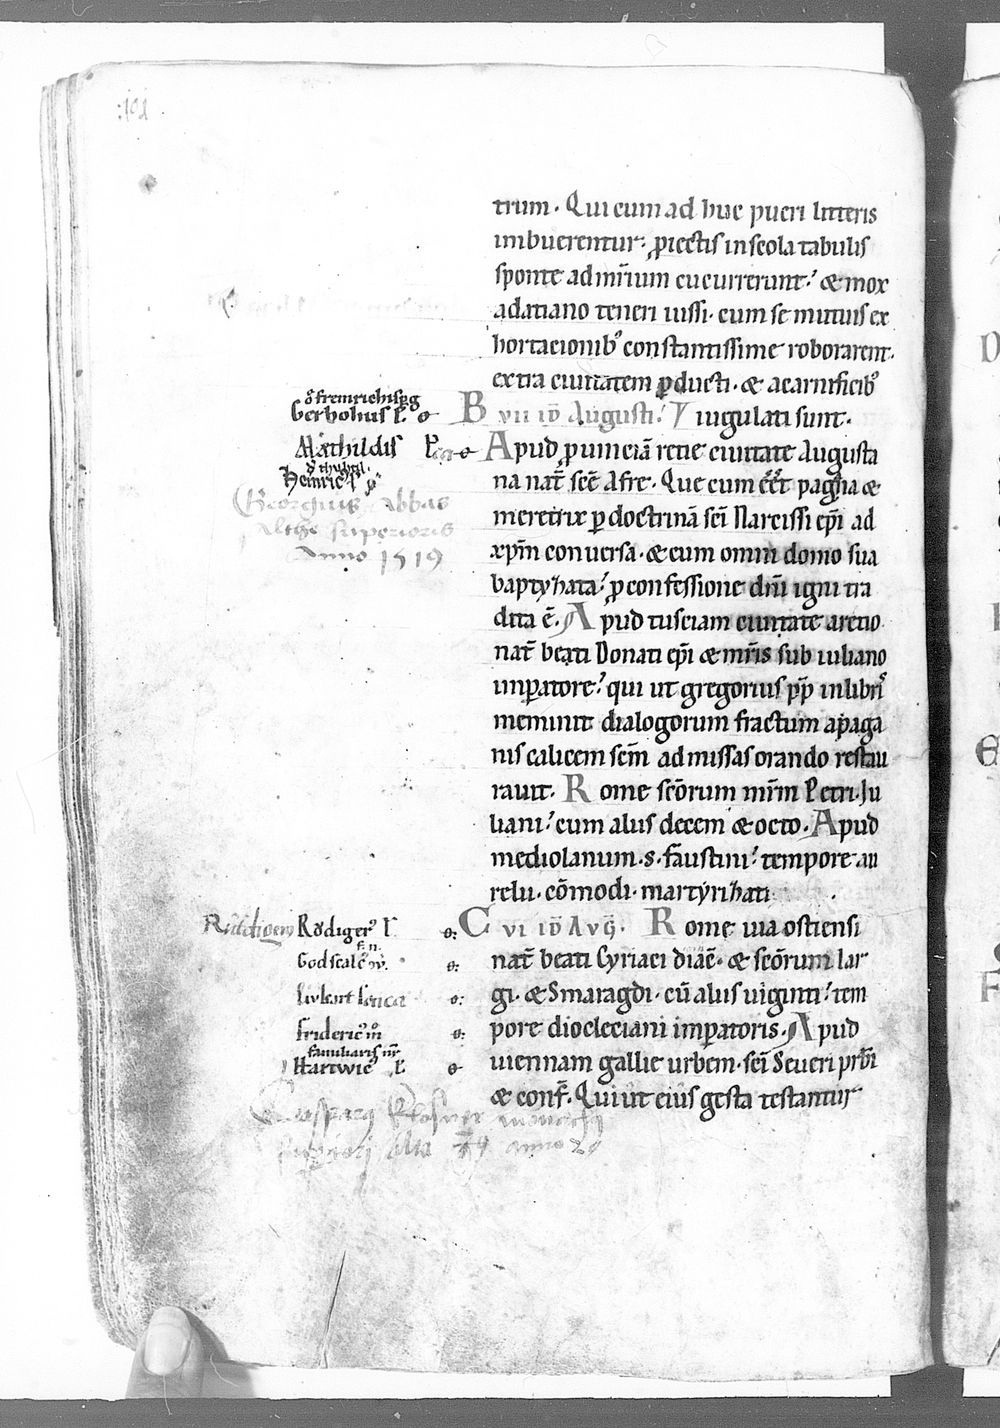 trum. Qui cum ad huc pueri litteris
imbuerentur. ꝓiectis in scola tabulis
sponte ad mr̄ium cucurrerunt. & mox
a datiano teneri iussi. cum se mutuis ex
hortacionibꝰ constantissime roborarent.
extra ciuitatem ꝓducti. & a carnificibꝰ
B vii id̄ Augusti. iugulati sunt.
Gerbohus
Mathildis
Heinric
Georgius Abbas
Althe superioris
Anno 1519
Apud ꝓuinciā retie ciuitate Augusta
na nat̄ sc̄e Afre. Que cum eēt pagana &
meretrix ꝑ doctrinā sc̄i Narcissi ep̄i ad
xp̄m conuersa. & cum omni domo sua
baptyhata. ꝓ confessione dn̄i igni tra
dita ē. Apud tusciam ciuitate aretio
nat̄ beati Donati ep̄i & mr̄is sub iuliano
imꝑatore. qui ut gregorius pp̄ in libris
meminit dialogorum fractum a paga
nis calicem sc̄m ad missas orando restau
rauit. Rome sc̄orum mr̄m Petri. Iu
liani. cum aliis decem & octo. Apud
mediolanum. s. faustini. tempore au
relii. cōmodi. martyrihati
Rudigerꝰ
C vi id̄ Avḡ. Rome uia ostiensi
Godscalc
nat̄ beati Cyriaci diāc. & sc̄orum lar
gi. & Smaragdi. cū aliis uiginti. tem
Fridericꝰ
pore diocleciani imꝑatoris. Apud
familiaris
Hartwic
uiennam gallie urbem. sc̄i Seueri prb̄i
& conf̄. Qui ut eius gesta testantur
anno 29